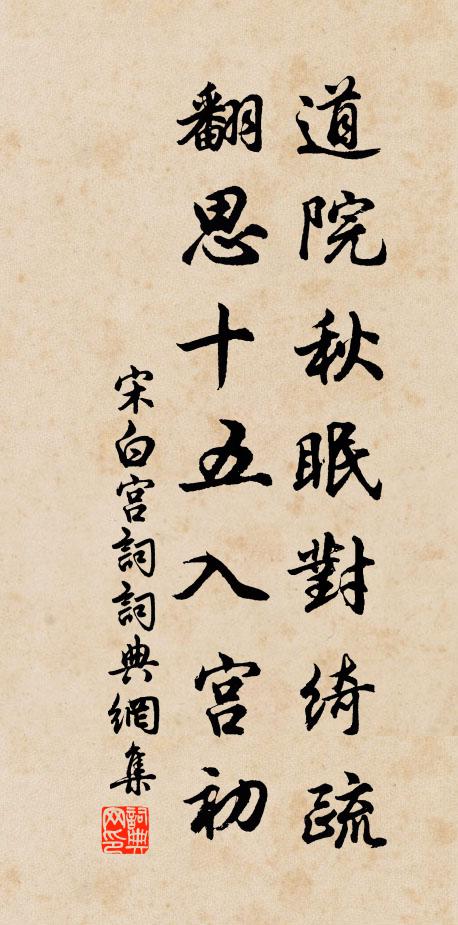 道院秋眠對綺疏
翻思十五入宫初
宋白宫詞詞典網集
詞典网印